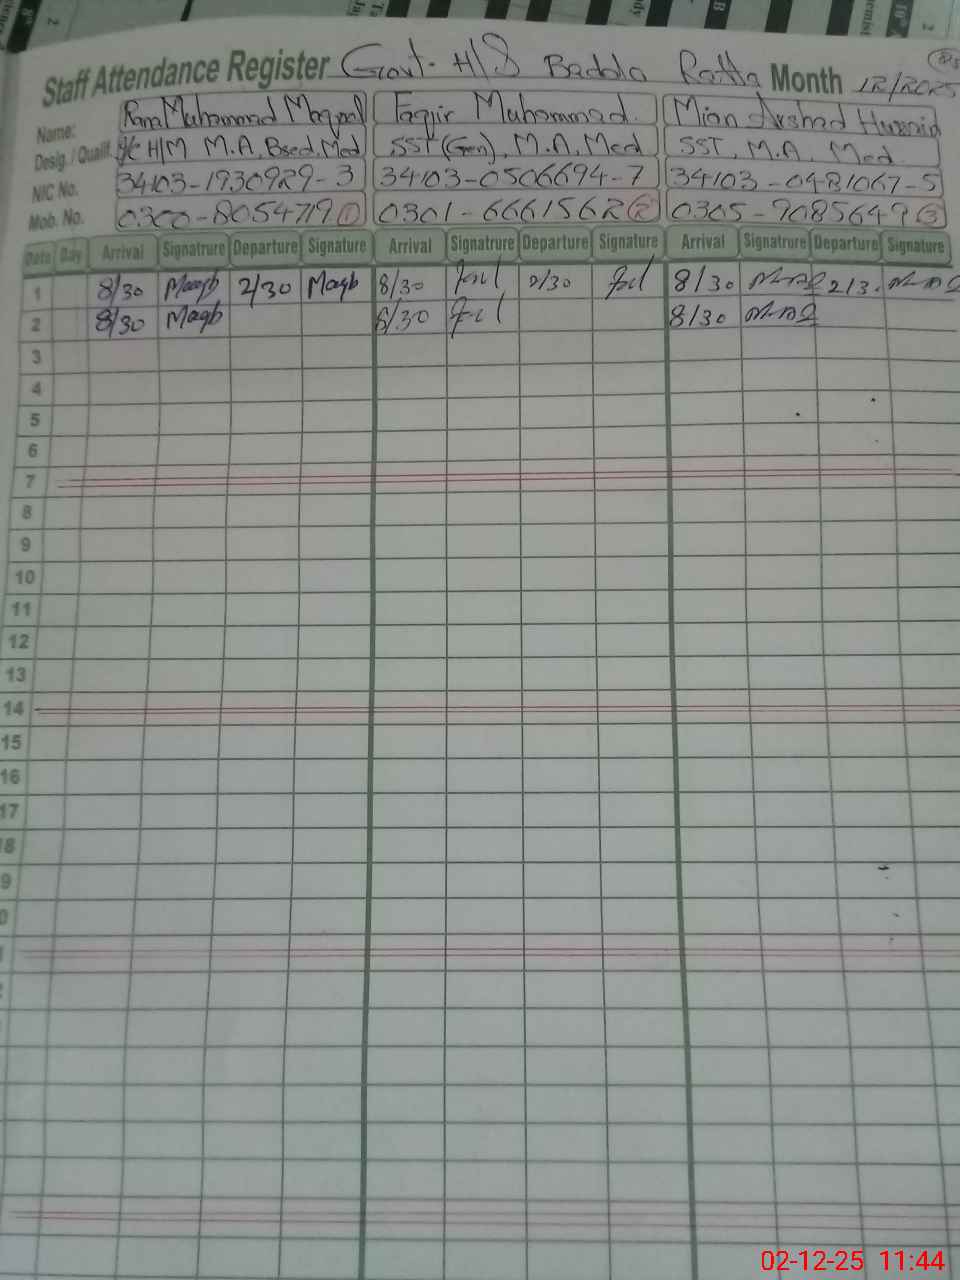 Staff Attendance Register Govt. H/S Baddo Ratta Month 12/2025
Name: Rana Muhammad Maqbool Faqir Muhammad. Mian Arshad Hussain
Desig. / Qualif. I/C H/M M.A, Bsed, Med SST (Gen), M.A, Med SST, M.A, Med
NIC No. 34103-1930929-3 34103-0506694-7 34103-0481067-5
Mob. No. 0300-8054719 1 0301-6661562 2 0305-9085649 3
Date Day Arrival Signatrure Departure Signature Arrival Signatrure Departure Signature Arrival Signatrure Departure Signature
1 8/30 Maqb 2/30 Maqb 8/30 2/30 8/30 2/3
2 8/30 Maqb 8/30 8/30
3
4
5
6
7
8
9
10
11
12
13
14
15
16
17
8
9
0
02-12-25 11:44